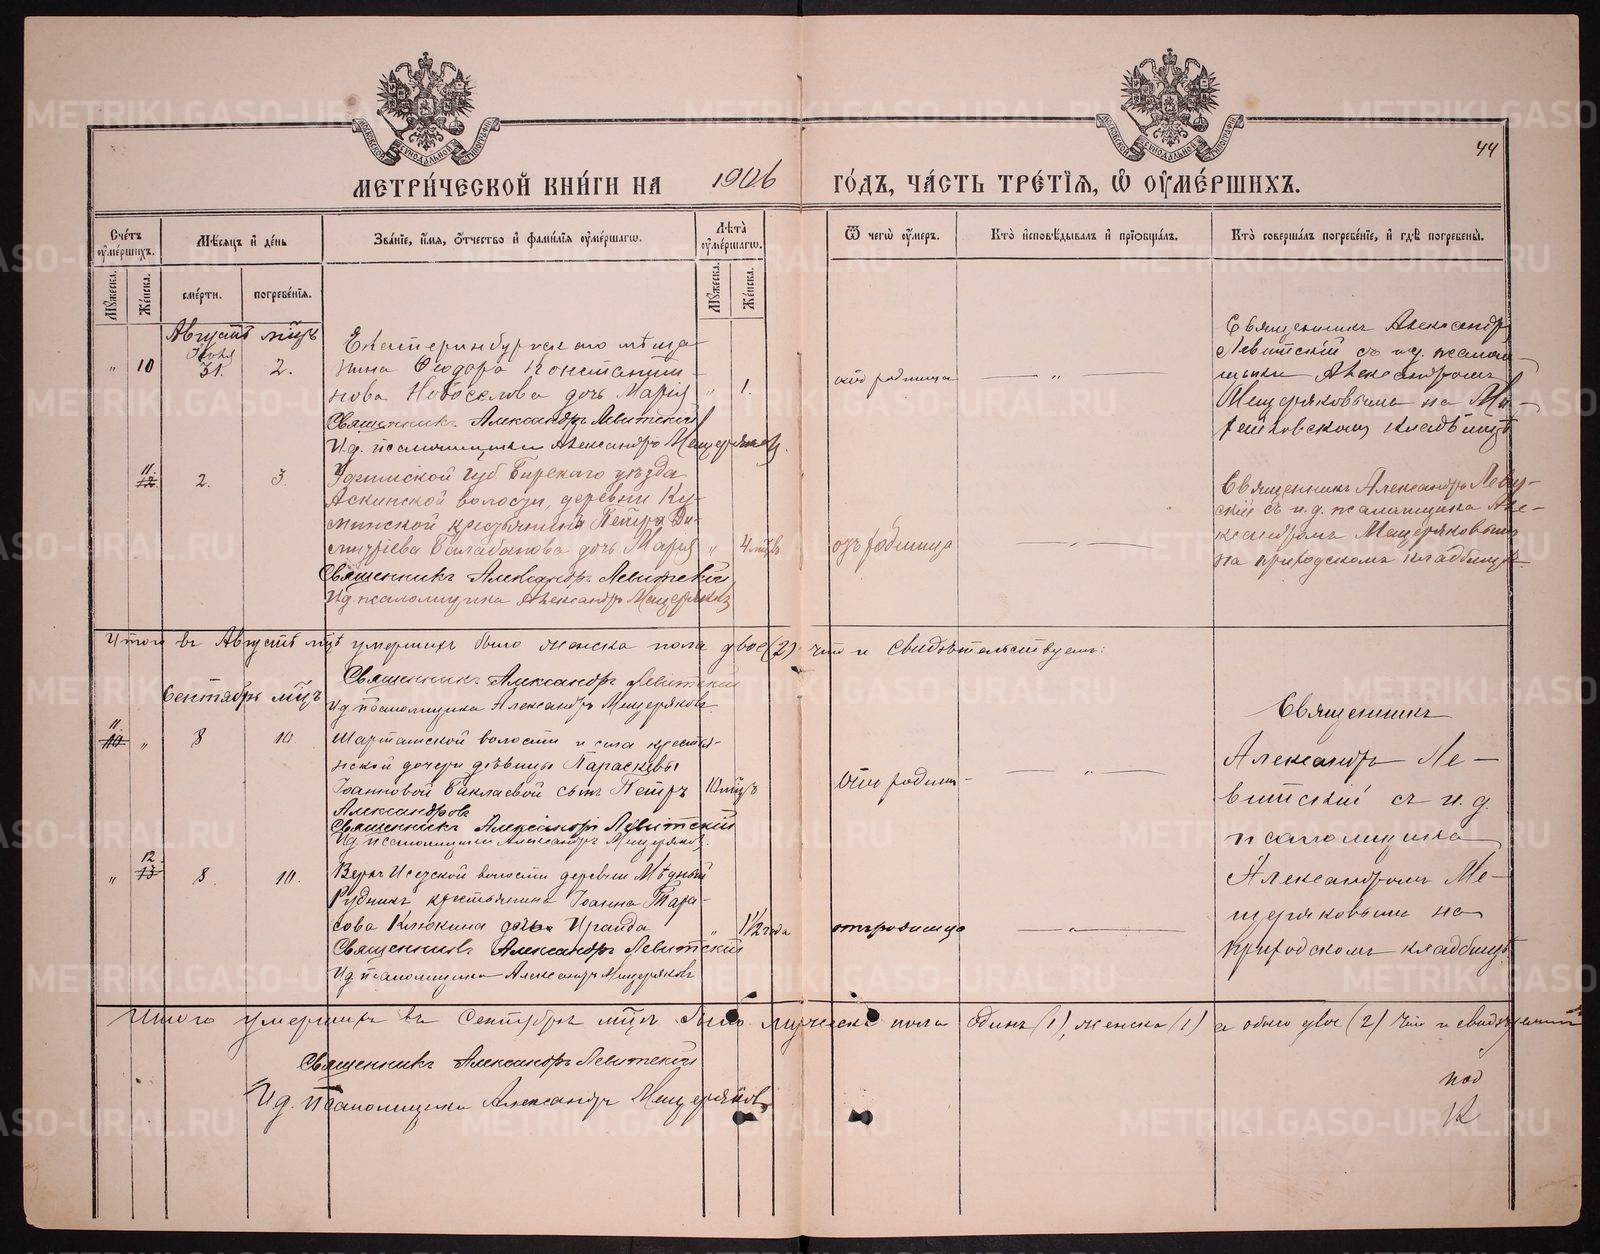 44
МЕТРИ́ЧЕСКОЙ КНИ́ГИ НА 1906 ГО́ДЪ, ЧА́СТЬ ТРЕ́ТІѦ, Ѽ ОУМЕ́РШИХЪ.
Сче́тъ оуме́ршихъ.
Мѣсяцъ и де́нь
Зва́ніе, и́мя, о́тчество и фами́лія оуме́ршагѡ.
Лѣта̀ оуме́ршагѡ.
Ѿ чегѡ̀ оу́меръ.
Кто̀ исповѣ́дывалъ и пріѡбща́лъ.
Кто̀ соверша́лъ погребе́ніе, и гдѣ̀ погребены̀.
Мꙋ́жеска.
Же́нска.
сме́рти.
погребе́нія.
Мꙋ́жеска.
Же́нска.
Августъ мѣцъ
Іюля
" 10 31. 2.
Екатеринбургскаго мѣща-
нина Ѳеодора Константи-
нова Новоселова дочь Марія " 1.
Священникъ Александръ Левитскій
И.д. псаломщика Александръ Мещеряковъ.
отъ родимца — " —
Священникъ Александръ
Левитскій съ и.д. псалом-
щика Александромъ
Мещеряковымъ на Ми-
хайловскомъ кладбищѣ
11.
12 2. 3.
Уфимской губ. Бирскаго уѣзда
Аскинской волости, деревни Ку-
минской крестьянина Петра Ди-
митріева Балабанова дочь Марія " 4 мѣсъ
Священникъ Александръ Левитскій
И.д. псаломщика Александръ Мещеряковъ
отъ родимца — " —
Священникъ Александръ Левит-
скій съ и.д. псаломщика Але-
ксандромъ Мещеряковымъ
на приходскомъ кладбищѣ
Итого въ Августѣ мѣцѣ умершихъ было женска пола двое (2) чѣмъ и свидѣтельствуемъ:
Священникъ Александръ Левитскій
И.д. псаломщика Александръ Мещеряковъ
Сентябрь мѣцъ
11
10 " 8 10.
Шарташской волости и села крестья-
нской дочери дѣвицы Параскевы
Іоанновой Баклаевой сынъ Петръ 10 мѣцъ
Александровъ
Священникъ Александръ Левитскій
И.д. псаломщика Александръ Мещеряковъ.
отъ родим- — " —
Священникъ
Александръ Ле-
витскій съ и.д.
псаломщика
Александромъ Ме-
щеряковымъ на
приходскомъ кладбищѣ
12
" 13 8. 10.
Верхъ Исетской волости деревни Мѣдный
Рудникъ крестьянина Іоанна Тара-
сова Клюкина дочь Ираида " 1 1/2 года
Священникъ Александръ Левитскій
И.д. псаломщика Александръ Мещеряковъ
отъ родимца — " —
Итого умершихъ въ Сентябрѣ мѣцѣ было мужеска пола одинъ (1), женска (1) а обоего двое (2) чѣмъ и свидѣтельств
Священникъ Александръ Левитскій
И.д. псаломщика Александръ Мещеряковъ